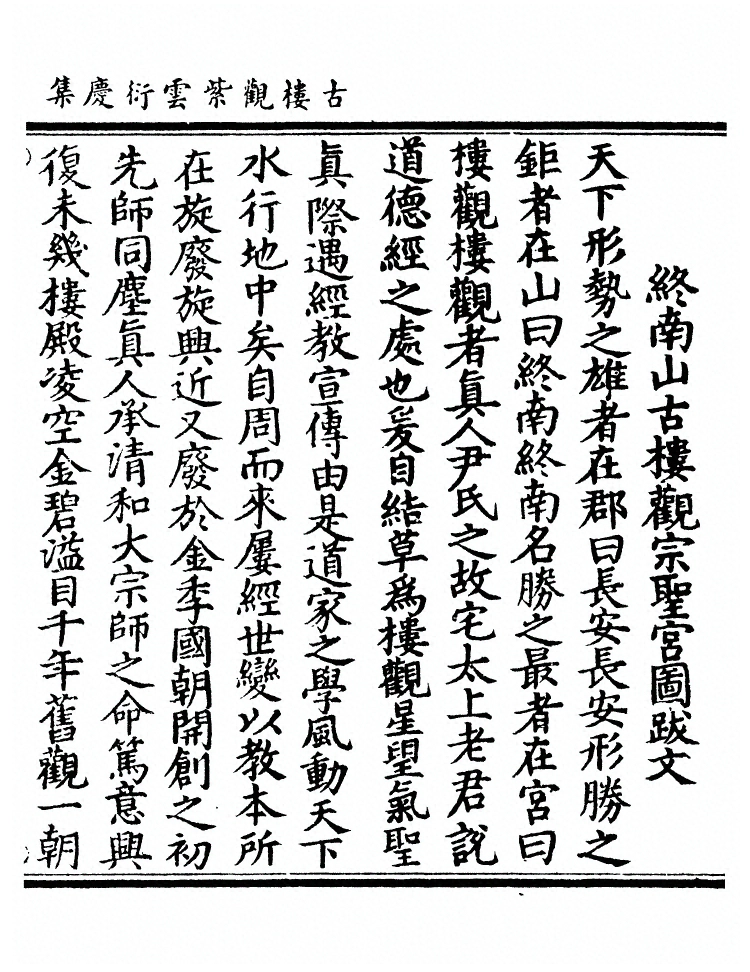 古樓觀紫雲衍慶集
終南山古樓觀宗聖宮圖跋文
天下形勢之雄者在郡曰長安長安形勝之
鉅者在山曰終南終南名勝之最者在宮曰
樓觀樓觀者眞人尹氏之故宅太上老君說
道德經之處也爰自結草爲樓觀星望氣聖
眞際遇經教宣傳由是道家之學風動天下
水行地中矣自周而來屢經世變以教本所
在旋廢旋興近又廢於金季國朝開創之初
先師同塵眞人承清和大宗師之命篤意興
復未幾樓殿凌空金碧溢目千年舊觀一朝